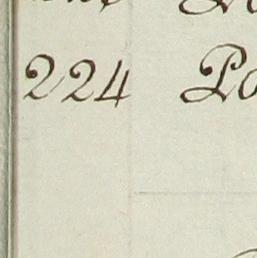 224 Po